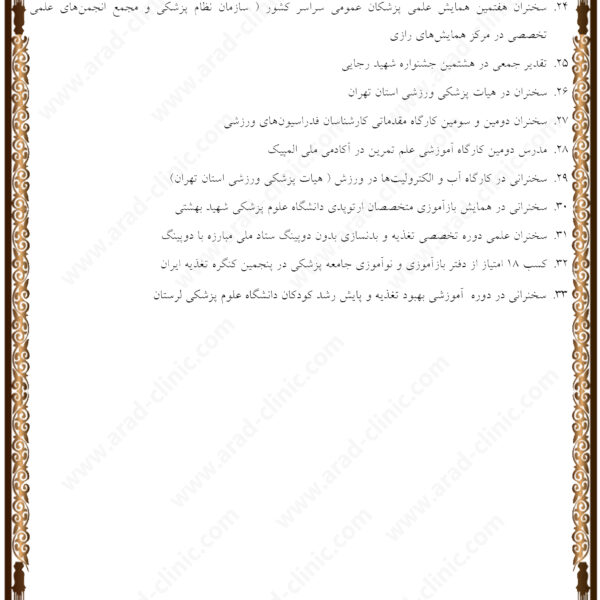 ۲۴. سخنران هفتمین همایش علمی پزشکان عمومی سراسر کشور ( سازمان نظام پزشکی و مجمع انجمن‌های علمی
تخصصی در مرکز همایش‌های رازی
۲۵. تقدیر جمعی در هشتمین جشنواره شهید رجایی
۲۶. سخنران در هیات پزشکی ورزشی استان تهران
۲۷. سخنران دومین و سومین کارگاه مقدماتی کارشناسان فدراسیون‌های ورزشی
۲۸. مدرس دومین کارگاه آموزشی علم تمرین در آکادمی ملی المپیک
۲۹. سخنرانی در کارگاه آب و الکترولیت‌ها در ورزش ( هیات پزشکی ورزشی استان تهران)
۳۰. سخنرانی در همایش بازآموزی متخصصان ارتوپدی دانشگاه علوم پزشکی شهید بهشتی
۳۱. سخنران علمی دوره تخصصی تغذیه و بدنسازی بدون دوپینگ ستاد ملی مبارزه با دوپینگ
۳۲. کسب ۱۸ امتیاز از دفتر بازآموزی و نوآموزی جامعه پزشکی در پنجمین کنگره تغذیه ایران
۳۳. سخنرانی در دوره آموزشی بهبود تغذیه و پایش رشد کودکان دانشگاه علوم پزشکی لرستان
www.arad-clinic.com
www.arad-clinic.com
www.arad-clinic.com
www.arad-clinic.com
www.arad-clinic.com
www.arad-clinic.com
www.arad-clinic.com
www.arad-clinic.com